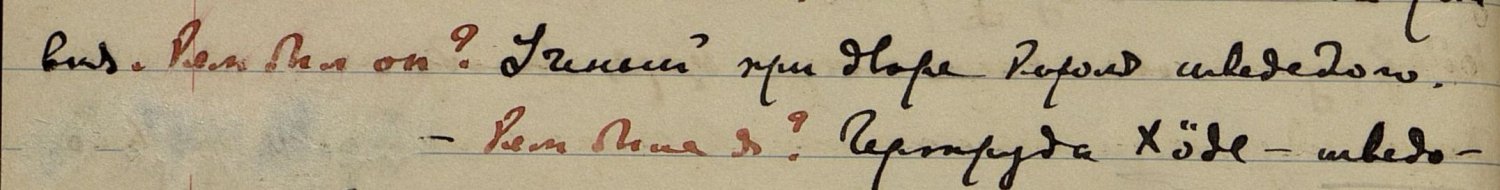 вид. Кем был он? Ученый при дворе короля шведского.
– Кем была я? Гертруда Хёде – шведо-